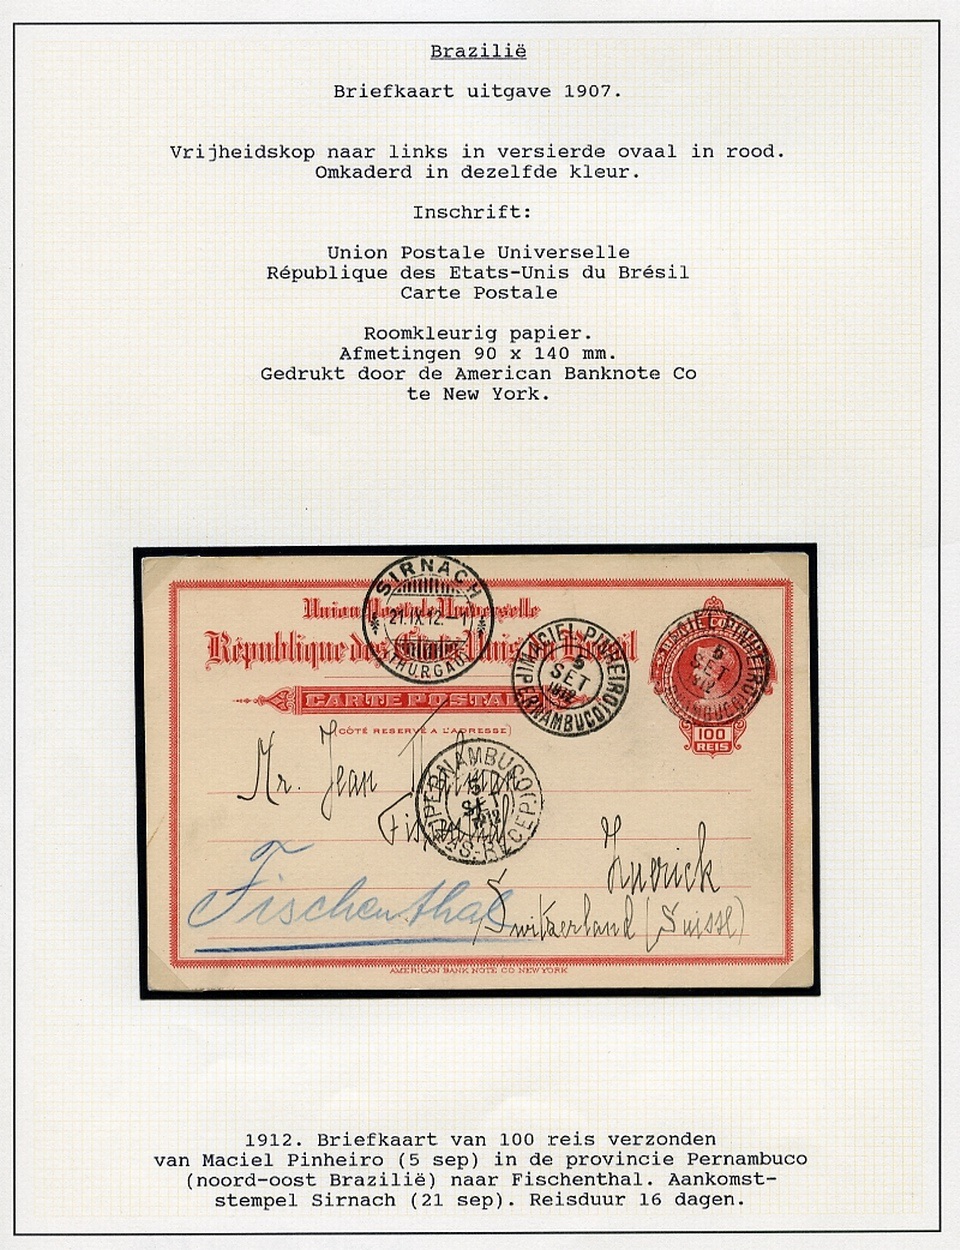 Brazilië
Briefkaart uitgave 1907.
Vrijheidskop naar links in versierde ovaal in rood.
Omkaderd in dezelfde kleur.
Inschrift:
Union Postale Universelle
République des Etats-Unis du Brésil
Carte Postale
Roomkleurig papier.
Afmetingen 90 x 140 mm.
Gedrukt door de American Banknote Co
te New York.
SIRNACH
21.IX.12.–1
THURGAU
Union Postale Universelle
République des Etats Unis du Brésil
MACIEL PINHEIRO
5
SET
1912
(PERNAMBUCO)
5
SET
1912
100
REIS
CARTE POSTALE
(CÔTÉ RESERVÉ A L'ADRESSE)
PERNAMBUCO
5
SET
1912
Mr. Jean
Zuerick
Fischenthal
Switzerland (Suisse)
AMERICAN BANK NOTE CO NEW YORK
1912. Briefkaart van 100 reis verzonden
van Maciel Pinheiro (5 sep) in de provincie Pernambuco
(noord-oost Brazilië) naar Fischenthal. Aankomst-
stempel Sirnach (21 sep). Reisduur 16 dagen.